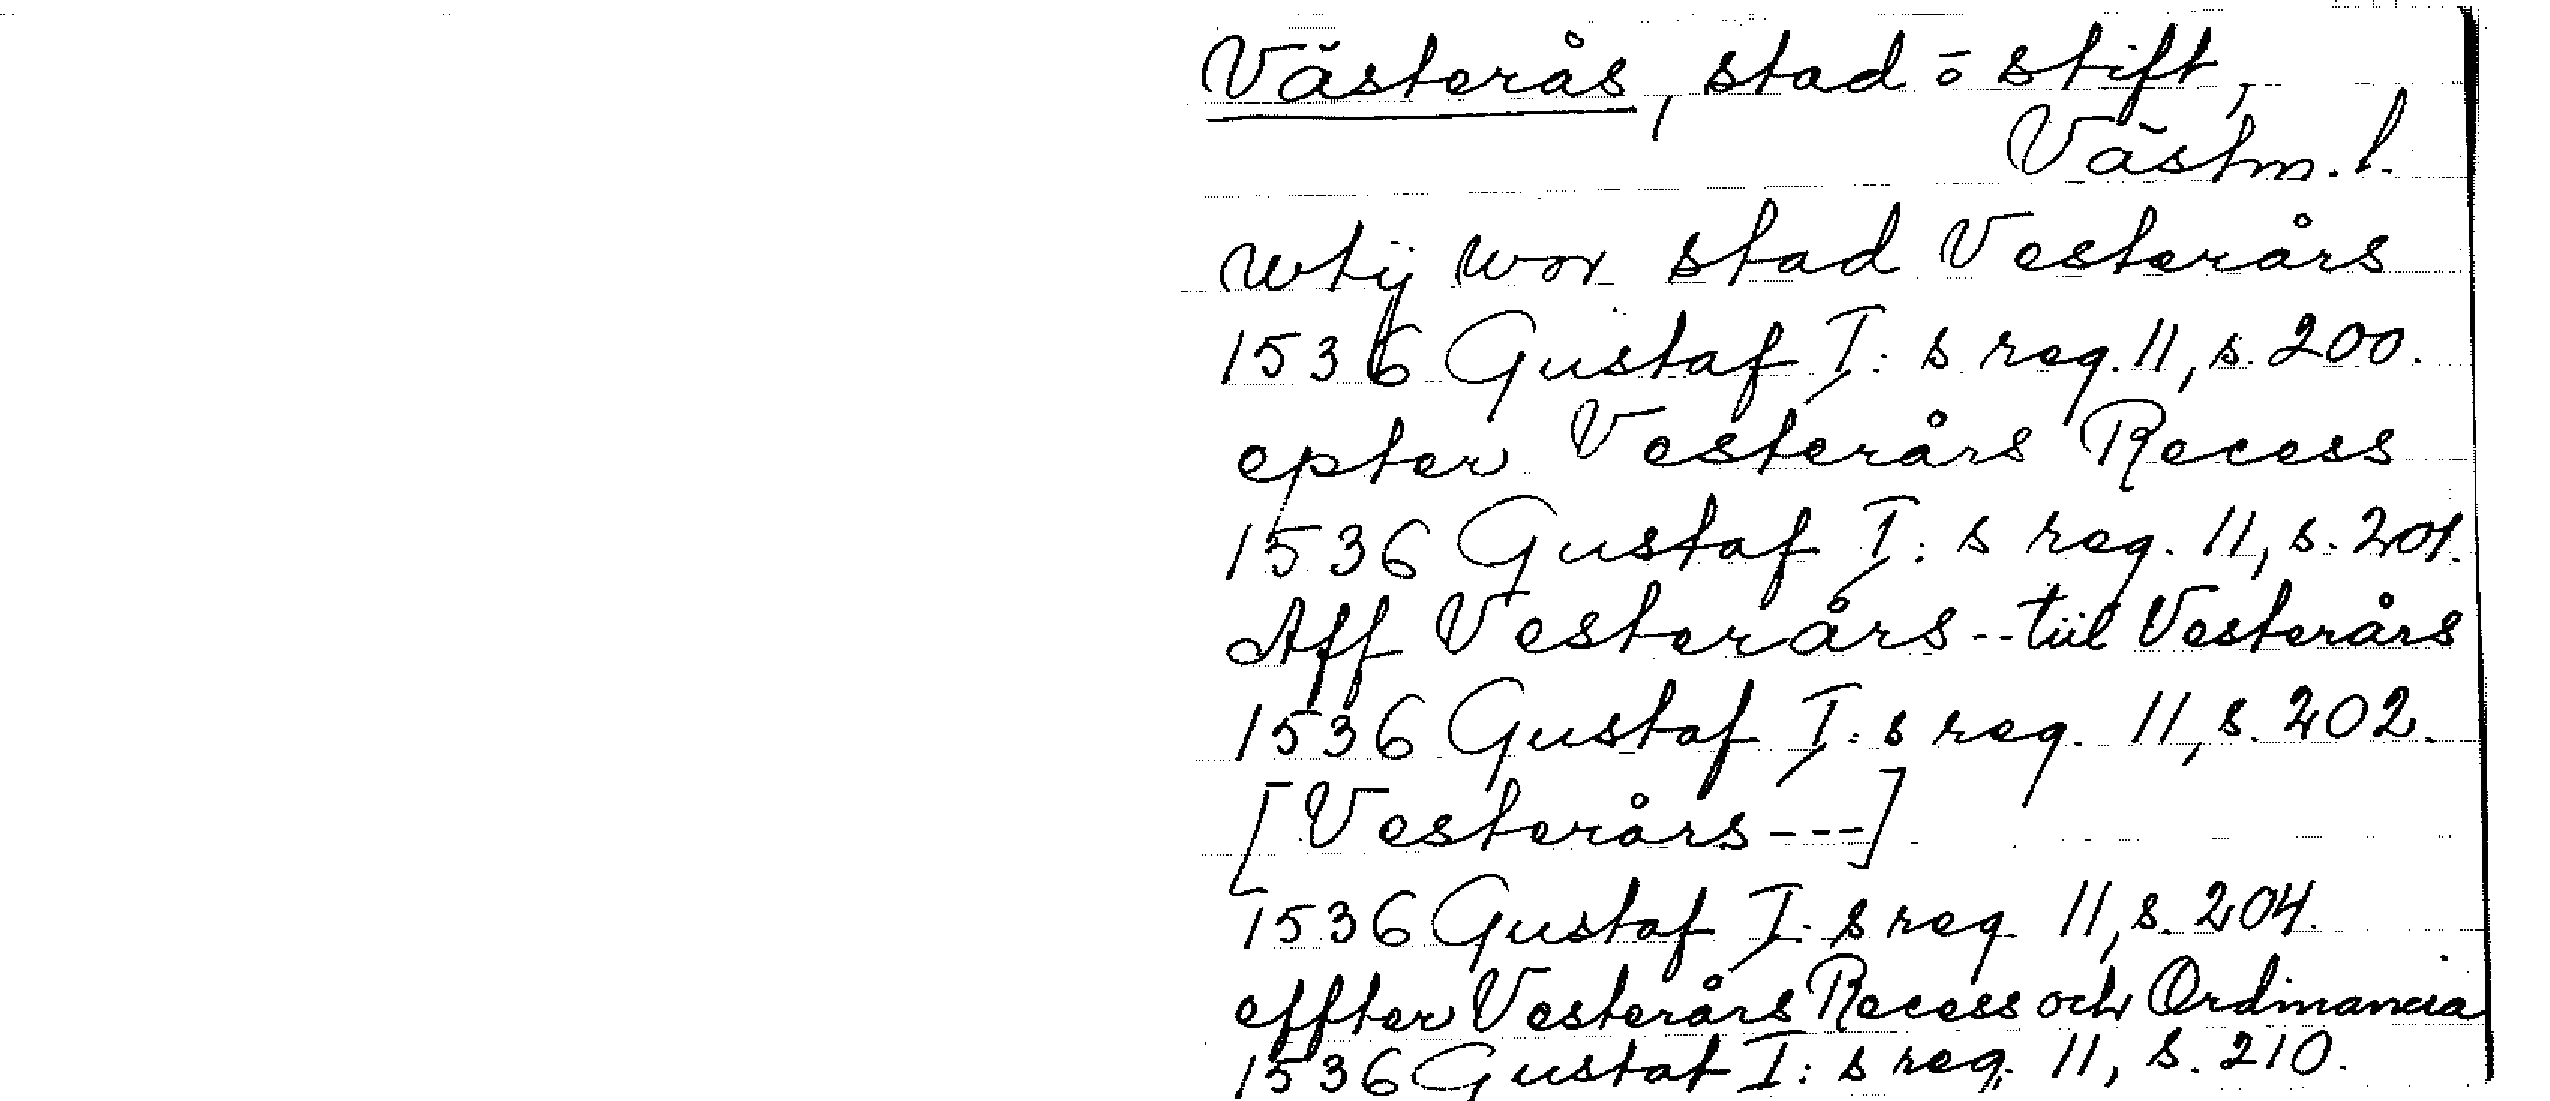 Västerås, stad o stift,
Västm. l.
wtij wor stad Vesterårs
1536 Gustaf I: s reg. 11, s. 200.
epter Vesterårs Recess
1536 Gustaf I: s reg. 11, s. 201.
Aff Vesterårs -- tiil Vesterårs
1536 Gustaf I: s reg. 11, s. 202.
[Vesterårs ---]
1536 Gustaf I: s reg 11, s. 204.
effter Vesterårs Recess och Ordinancia
1536 Gustaf I: s reg. 11, s. 210.